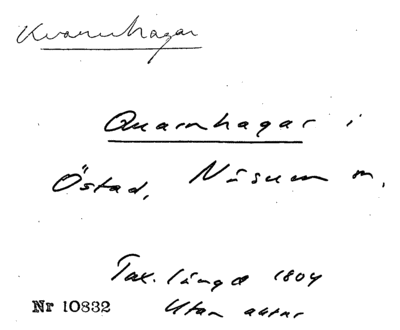 Kvarnhagar
Quarnhagar i
Östad, Näsum m.
Tax. längd 1804
Nr 10832 Utan autor